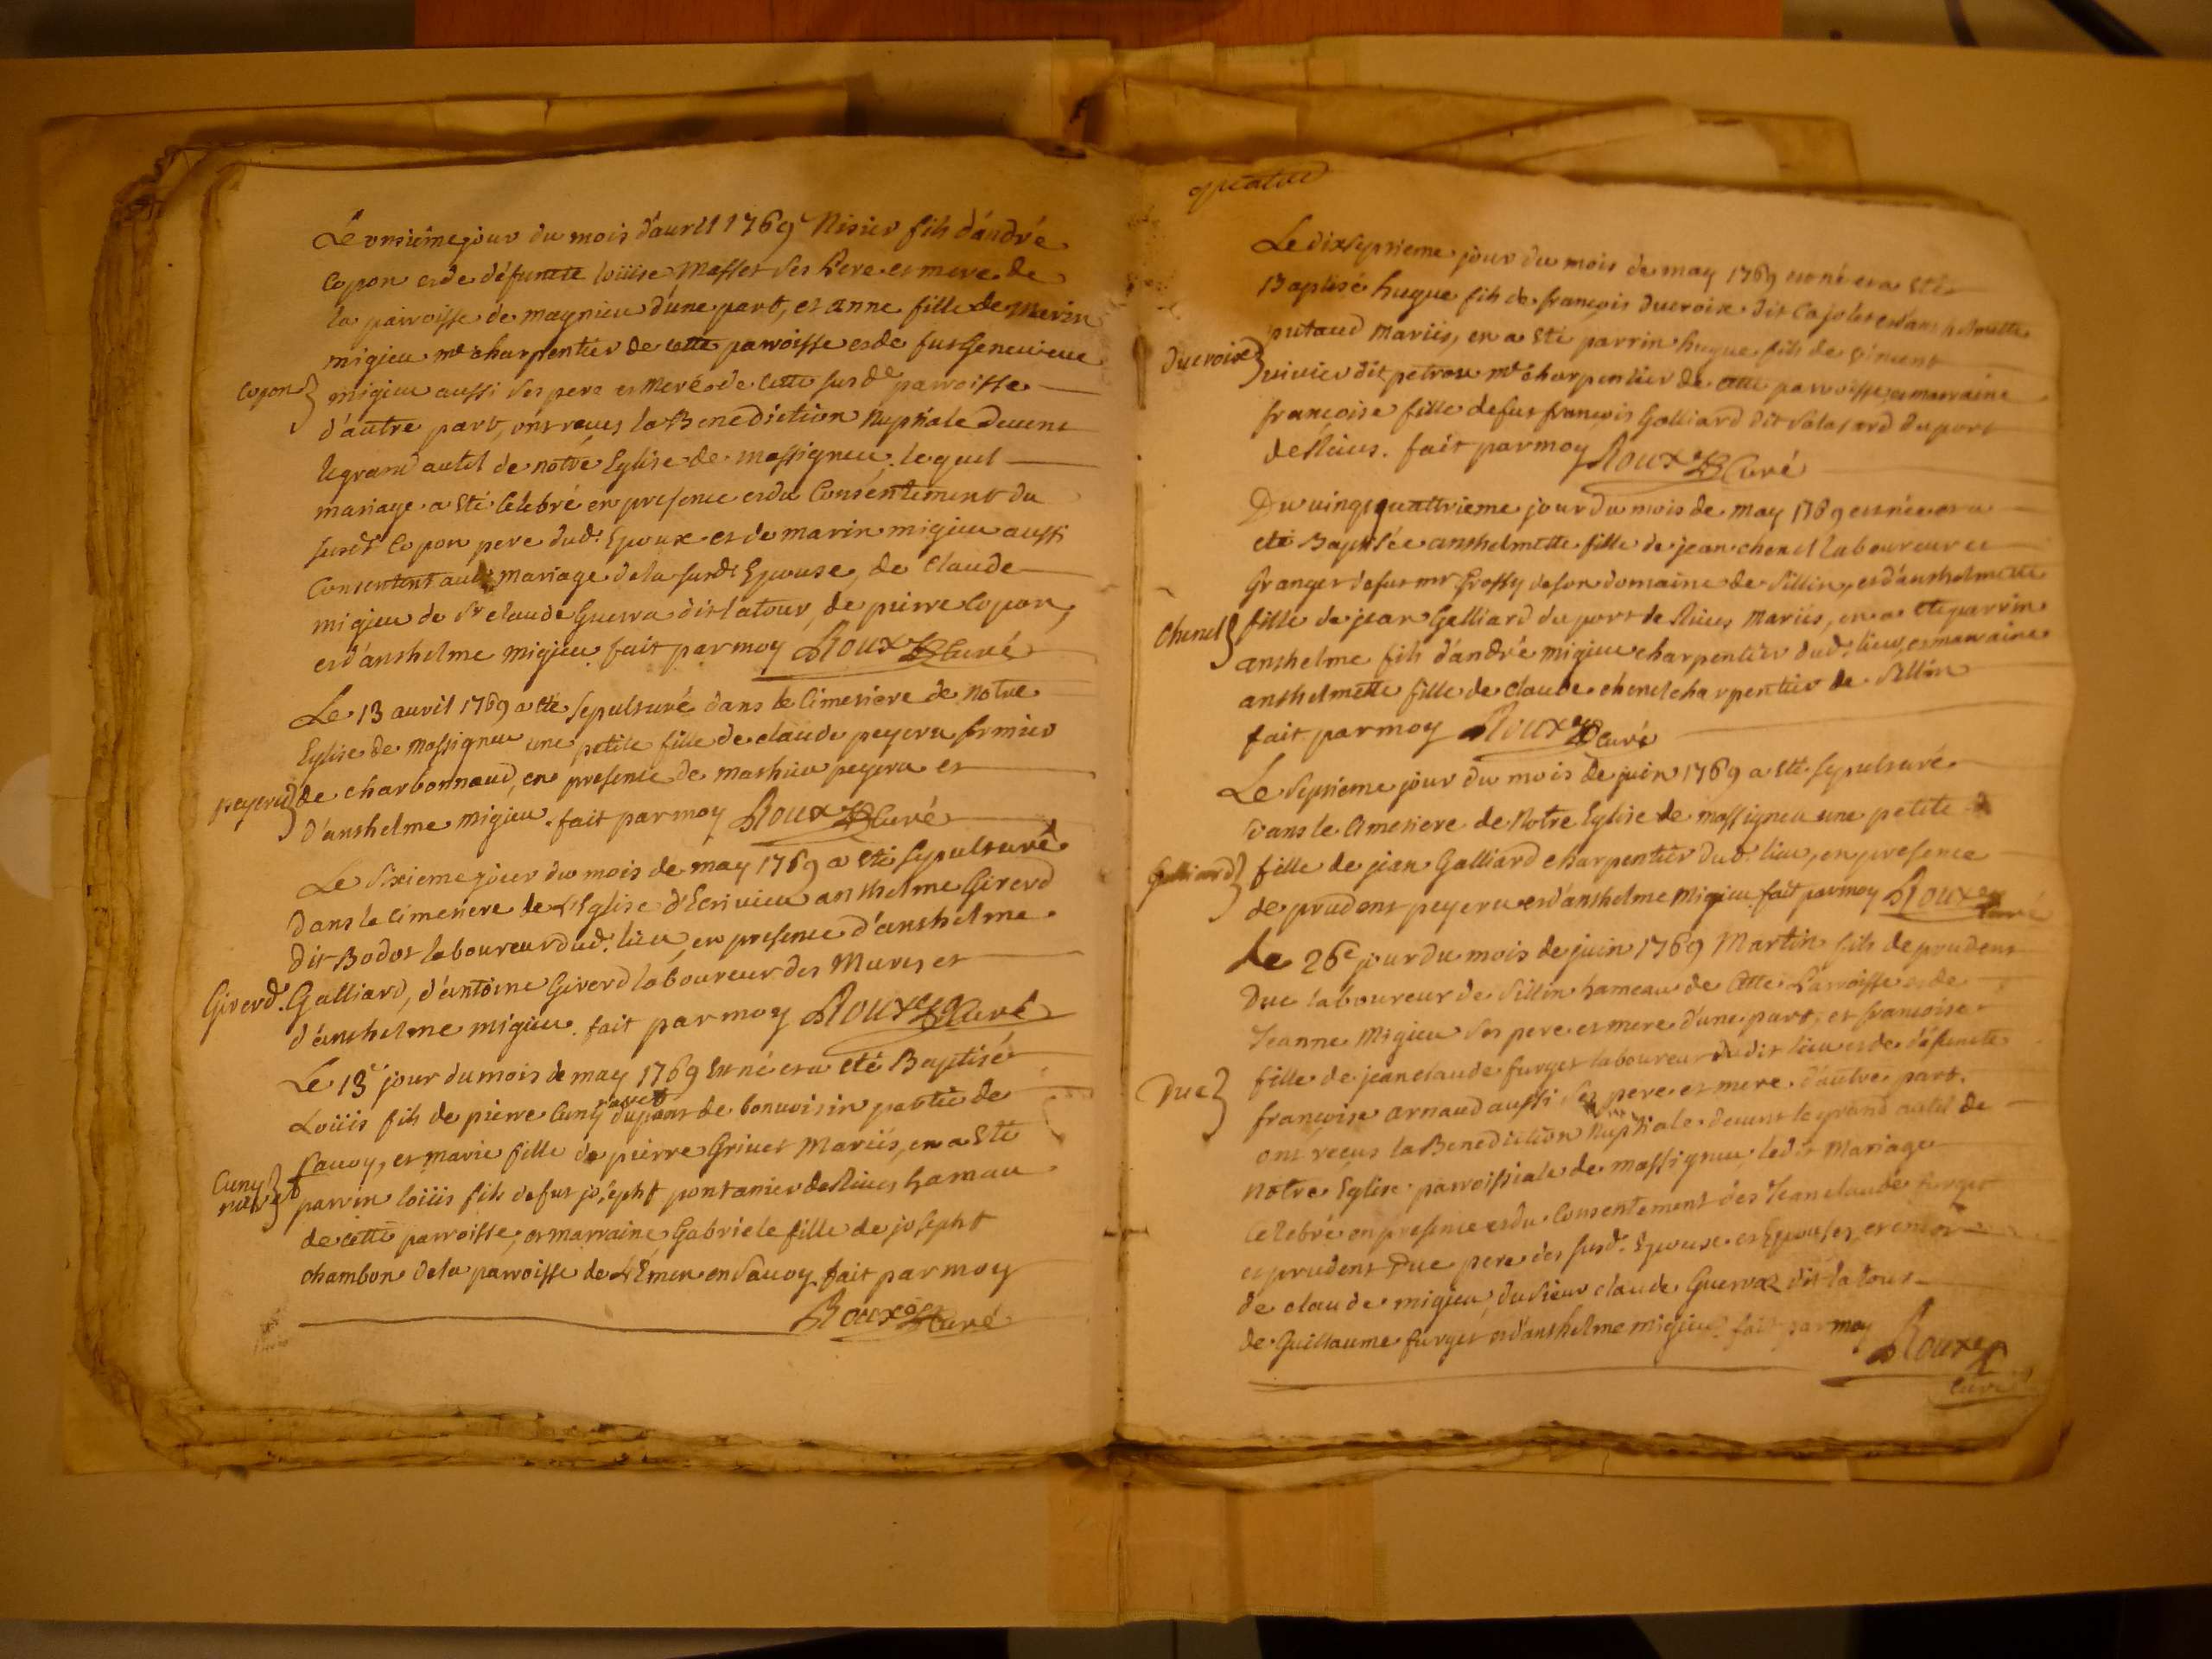 Le onsieme jour du mois d'avril 1769 Nisier fils d'andré
Copon et de défuncte loüise Masset ses Pere et mere de
la parroisse de magnieu d'une part, et anne fille de marin
migieu me charpentier de cette parroisse et de fut Genevieve
Copon
migieu aussi ses pere et Mere de cette susde parroisse
d'autre part, ont reçus la Benediction Nuptiale devent
le grand autel de notre Eglise de massigneu. lequel
mariage a eté Celebré en presence et du Consentement du
susdt Copon pere dud. Epoux et de marin migieu aussi
Consentent aud. mariage de la susde Epouse, de Claude
migieu de Sr claude Guerra dit latour, de pierre Copon,
et d'anthelme migieu. fait par moy Roux Curé
Le 13 avril 1769 a eté sepulturé dans le Cimetiere de notre
Eglise de massigneu une petite fille de claude peyeru fermier
peyeru
de charbonnaud, en presence de mathieu peyeru et
d'anthelme migieu. fait par moy Roux Curé
Le sixieme jour du mois de may 1769 a eté sepulturé
dans le Cimetiere de l'Eglise d'Ecrivieu anthelme Girerd
dit Bodot laboureur dud. lieu, en presence d'anthelme
Girerd.
Galliard, d'antoine Girerd laboureur des Mures et
d'anthelme migieu. fait par moy Roux Curé
Le 13e jour du mois de may 1769 est né et a eté Baptisé
Loüis fils de pierre Cuny ravet du pont de bonvoisin partie de
Savoy, et marie fille de pierre Grivet Mariés, en a eté
Cuny
ravet
parrin loüis fils de fut joseph pontanier de Rives hamau
de cette parroisse, et marraine Gabriele fille de joseph
chambon de la parroisse de St Emen en Savoy. fait par moy
Roux Curé
quatre
Le dixseptieme jour du mois de may 1769 est né et a eté
Baptisé hugue fils de françois Ducroix dit Cajolet et d'anthelmette
putaud Mariés, en a eté parrin hugue fils de Siment
Ducroix
vivier dit petrou me charpentier de cette parroisse, et marraine
françoise fille de fut françois Galliard dit Salasard du port
de Rives. fait par moy Roux Curé
Du vingtquattrieme jour du mois de may 1769 est née et a
eté Baptisée anthelmette fille de jean chenel laboureur et
Granger de fut mr Grossy de son domaine de Sillin, et d'anthelmette
Chenel
fille de jean Galliard du port de Rives Mariés, en a eté parrin
anthelme fils d'andré migieu charpentier dud. lieu, et marraine
anthelmette fille de claude chenel charpentier de Sillin
fait par moy Roux Curé
Le septieme jour du mois de juin 1769 a eté sepulturé
dans le Cimetiere de Notre Eglise de massigneu une petite
Galliard
fille de jean Galliard charpentier dud. lieu, en presence
de prudent peyeru et d'anthelme Migieu. fait par moy Roux Curé
Le 26e jour du mois de juin 1769 Martin fils de prudent
Duc laboureur de Sillin hameau de Cette Parroisse et de
Jeanne Migieu ses pere et mere d'une part, et françoise
Duc
fille de jeanclaude furget laboureur dudit lieu et de défuncte
françoise arnaud aussi ses pere et mere. d'autre part.
ont reçus la Benediction Nuptiale devent le grand autel de
Notre Eglise parroissiale de massigneu, ledit Mariage
Celebré en presence et du Consentement des Jeanclaude furget
et prudent Duc pere des susd. Epoux et Epouses, et encor
de claude migieu, du Sieur claude Guerraz dit latour
de Guillaume furget et d'anthelme migieu. fait par moy Roux
Curé